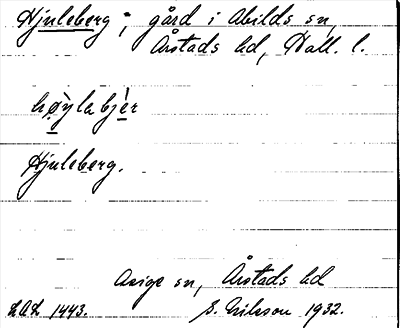 Hjuleberg; gård i Abilds sn,
Årstads hd, Hall. l.
høylabjèr
Hjuleberg.
Asige sn, Årstads hd
LAL 1443. S. Eriksson 1932.